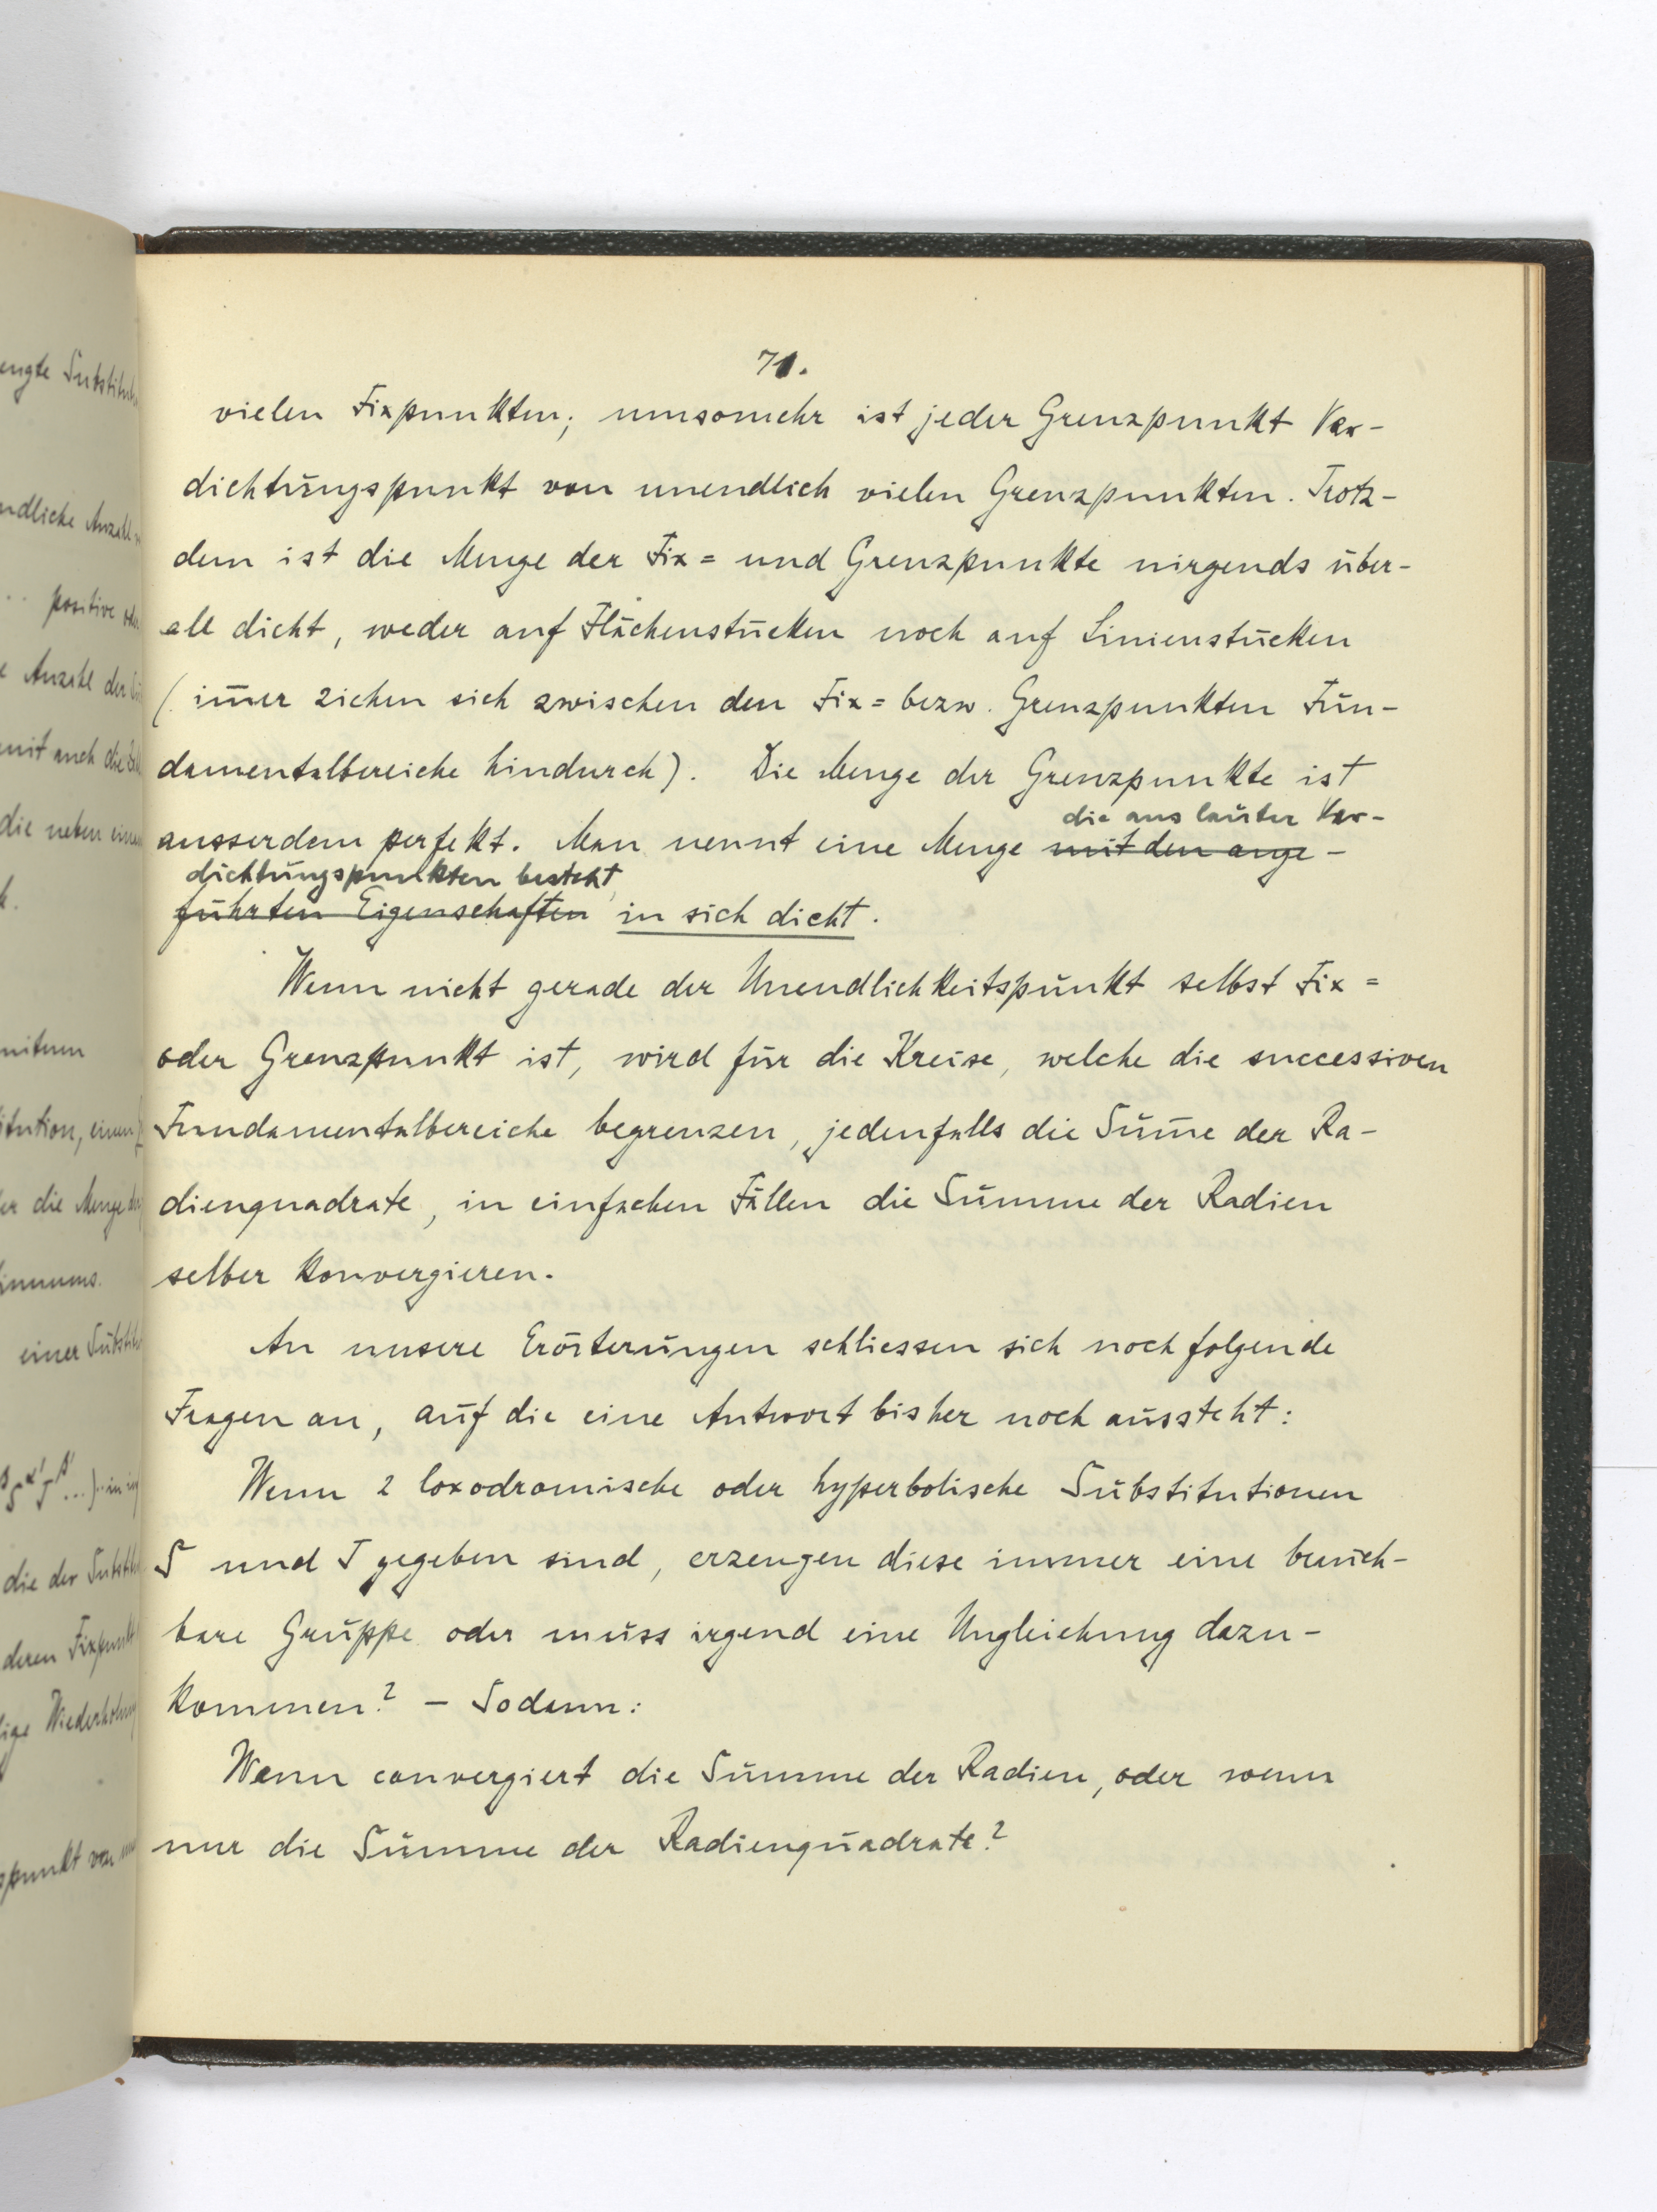 71.
vielen Fixpunkten; umsomehr ist jeder Grenzpunkt Ver-
dichtungspunkt von unendlich vielen Grenzpunkten. Trotz-
dem ist die Menge der Fix= und Grenzpunkte nirgends über-
all dicht, weder auf Flächenstücken noch auf Linienstücken
(im̅er ziehen sich zwischen den Fix= bezw. Grenzpunkten Fun-
damentalbereiche hindurch). Die Menge der Grenzpunkte ist
die aus lauter Ver-
ausserdem perfekt. Man nennt eine Menge mit den ange-
dichtungspunkten besteht,
führten Eigenschaften in sich dicht.
Wenn nicht gerade der Unendlichkeitspunkt selbst Fix=
oder Grenzpunkt ist, wird für die Kreise, welche die successiven
Fundamentalbereiche begrenzen, jedenfalls die Sum̅e der Ra-
dienquadrate, in einfachen Fällen die Summe der Radien
selber konvergieren.
An unsere Erörterungen schliessen sich noch folgende
Fragen an, auf die eine Antwort bisher noch aussteht:
Wenn 2 loxodromische oder hyperbolische Substitutionen
S und T gegeben sind, erzeugen diese immer eine brauch-
bare Gruppe oder muss irgend eine Ungleichung dazu-
kommen? – Sodann:
Wann convergiert die Summe der Radien, oder wenn
nur die Summe der Radienquadrate?
engte
positive
Anzahl der
mit auch die
die neben einan
h.
einer
die der
deren Fixpunkt
punkt von